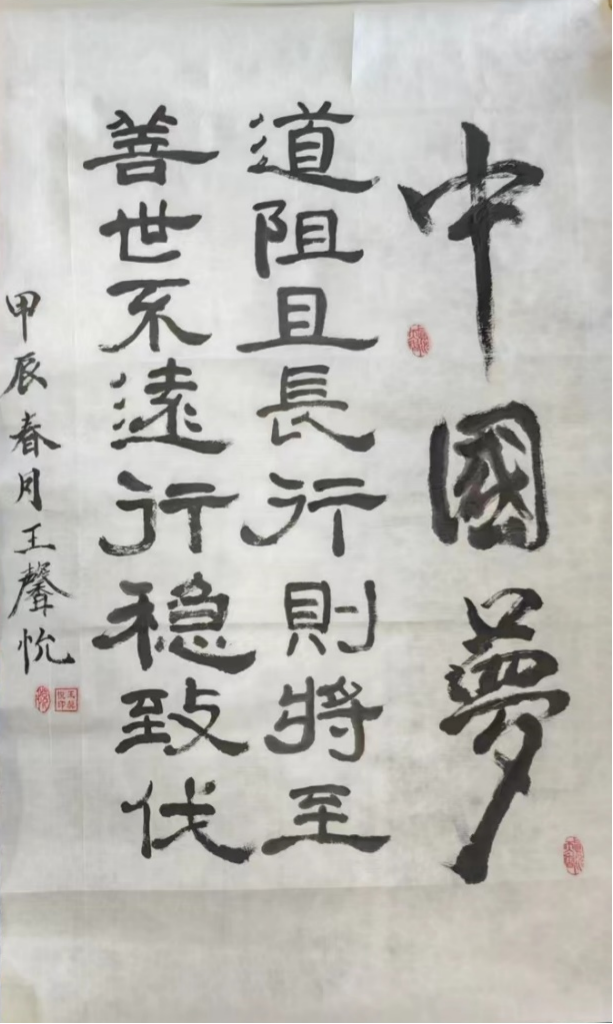 中國夢
道阻且長行則將至
善世不遠行稳致伐
甲辰春月王聲悦